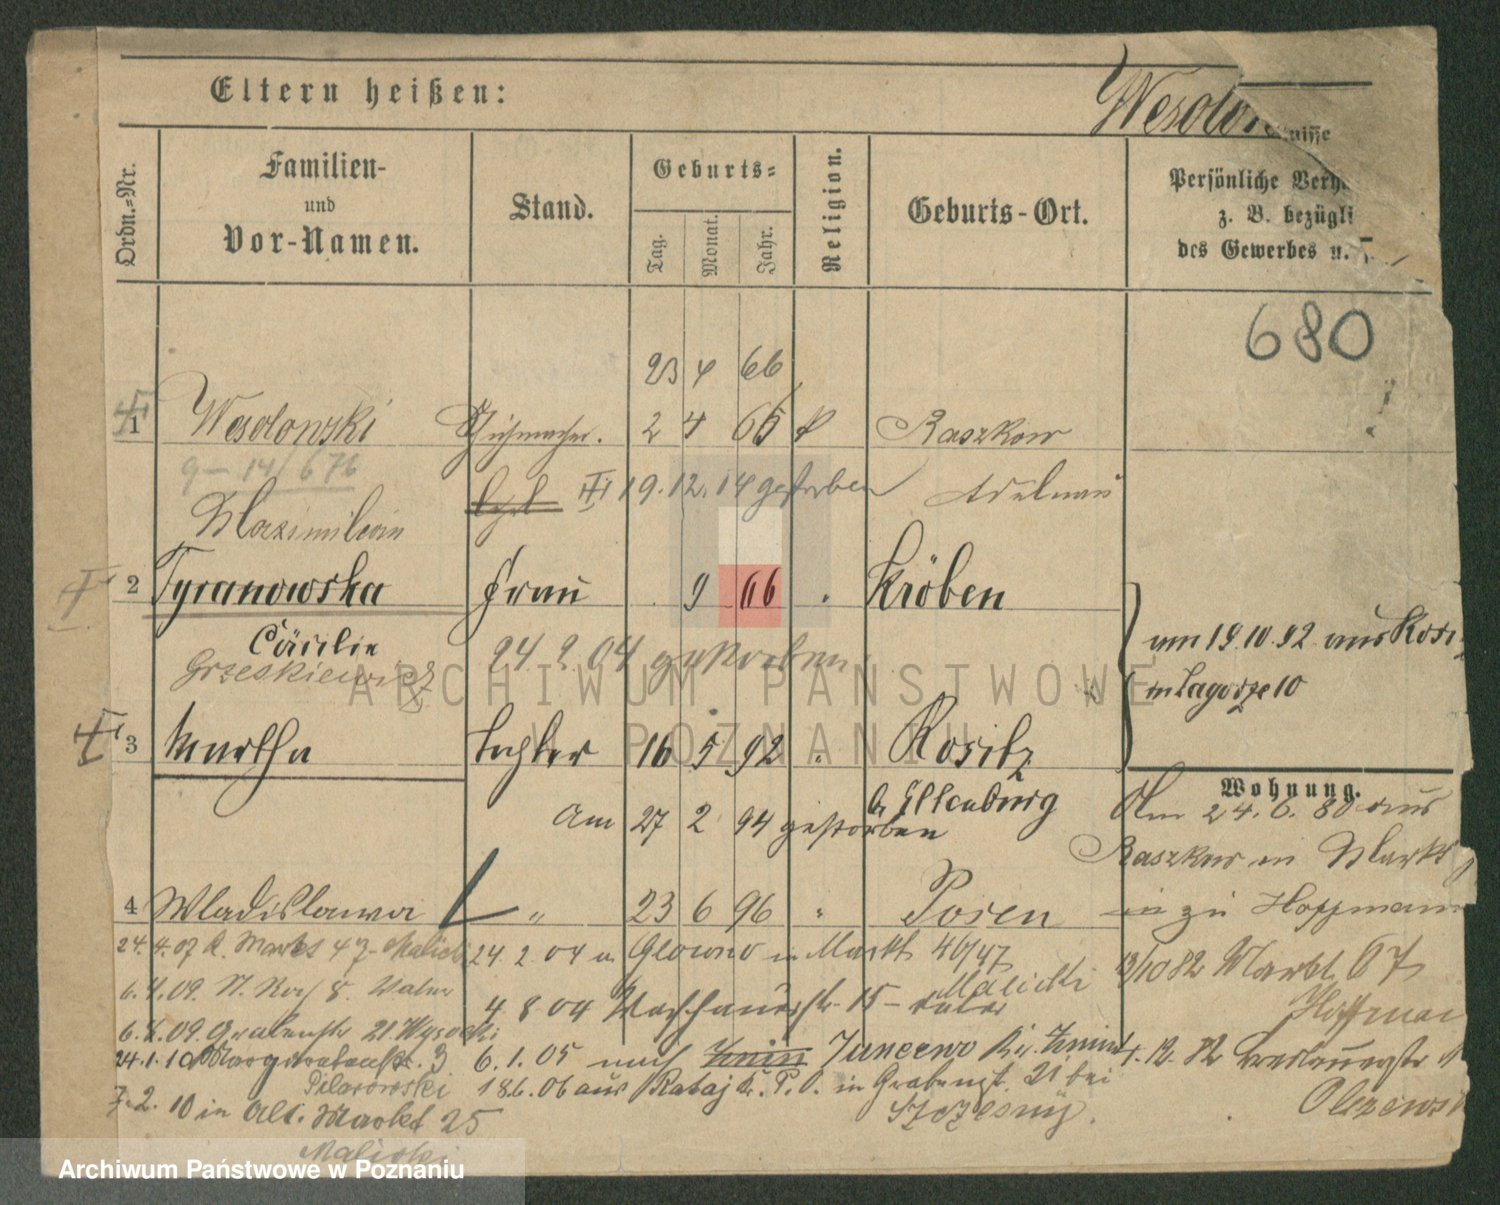 Eltern heißen:
Wesolow
nisse
Ordn.=Nr.
Familien-
und
Vor-Namen.
Stand.
Geburts=
Tag.
Monat.
Jahr.
Religion.
Geburts-Ort.
Persönliche Verh
z. B. bezügli
des Gewerbes u.
680
23 4 66
1 Wesolowski Schuhmacher. 2 4 65 k Raszkow
9 - 14/676
III 19.12.14 gestorben Adelnau
Maximilian
2 Tyranowska Frau 9 66 " Kröben
Cäcilie
24.2.04 gestorben
Grzeskiewicz
am 19.10.92 aus Rosi
in Zagorze 10
3 Martha Tochter 16 5 92 " Rositz
b. Eilenburg
Am 27 2 94 gestorben
Wohnung.
Am 24.6.80 aus
Raszkow in Markt
zu Hoffmann
4 Wladislawa " 23 6 96 " Posen
24.4.07 Markt 47 Malicki
24.2.04 n Glowno in Markt 46/47
Malicki
13/10 82 Markt 67
Hoffman
6.4.09.
4 8 04 15
6.X.09. Grabenstr 21 Wysocki
24.1.10 3
Pilarowski
6.1.05 nach Znin Juncewo Kr. Znin
4.12.82
186.06 aus Rataj Kr. P. O. in Grabenst. 21 bei
Szczesny.
Olszewsk
7.2.10 in Alt. Markt 25
Malicki
ARCHIWUM PAŃSTWOWE
W POZNANIU
Archiwum Państwowe w Poznaniu